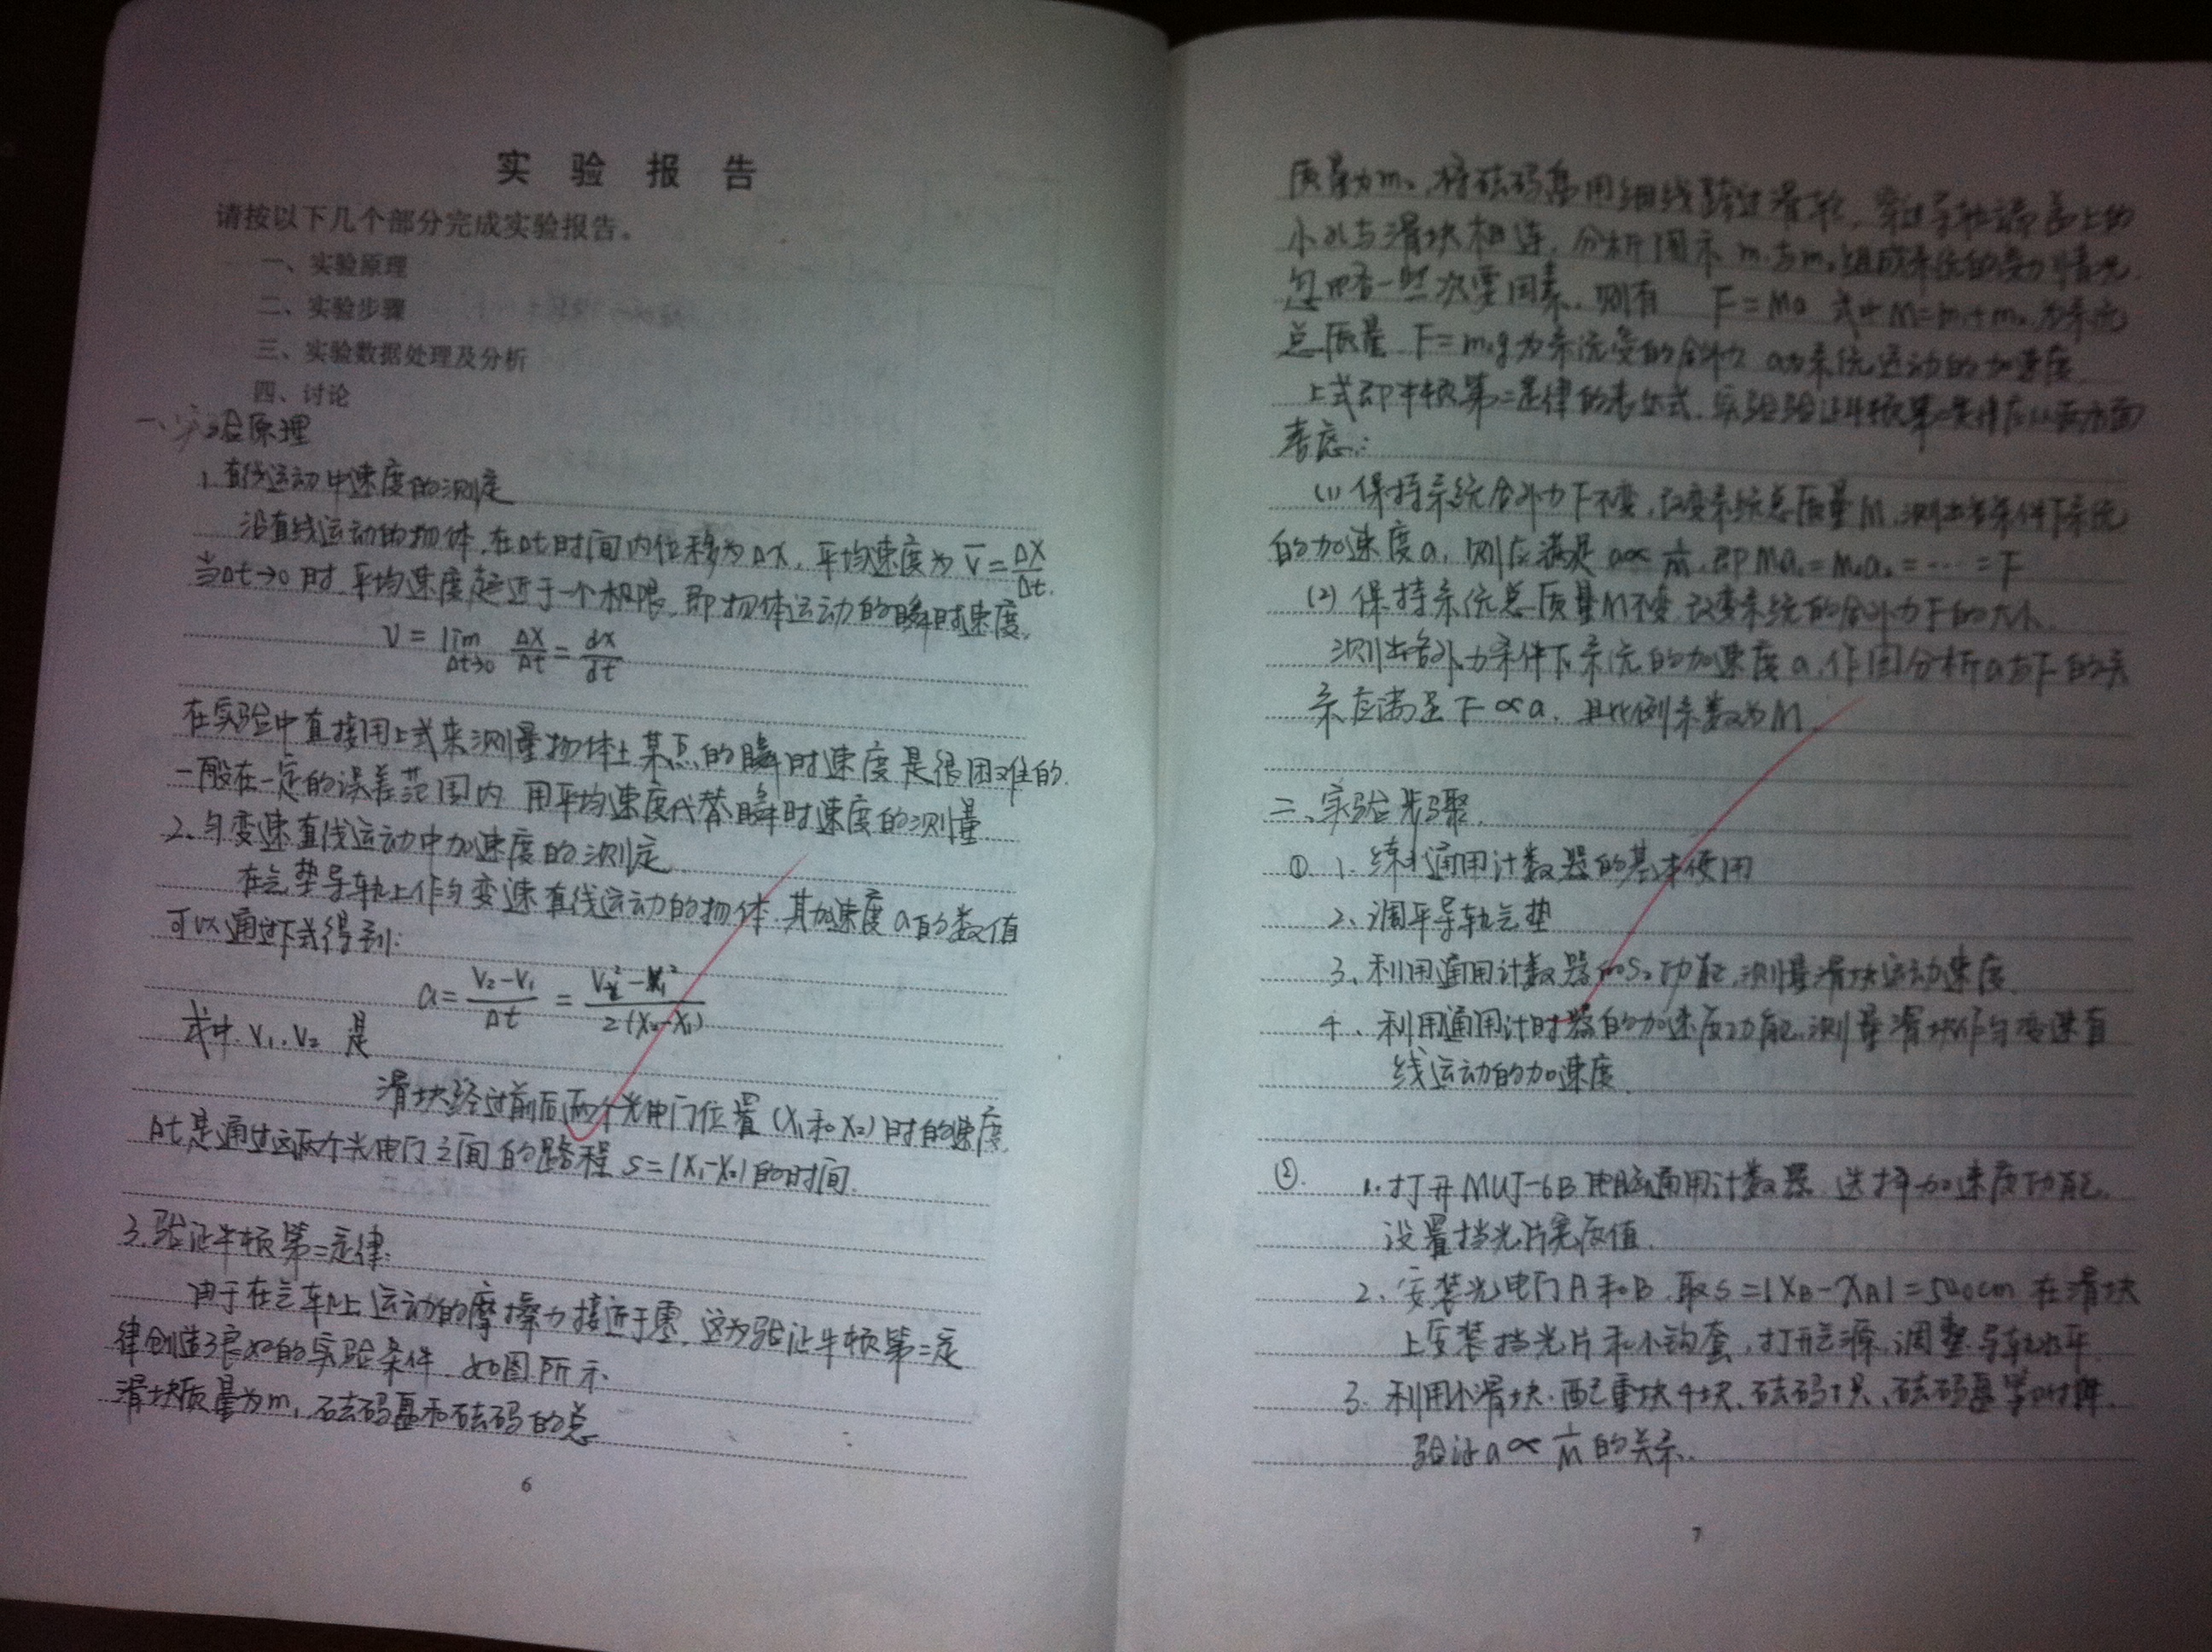 实验报告
请按以下几个部分完成实验报告。
一、实验原理
二、实验步骤
三、实验数据处理及分析
四、讨论
一、实验原理
1.直线运动中速度的测定
沿直线运动的物体,在Δt时间内位移为ΔX,平均速度为 v̄=ΔX/Δt.
当Δt→0时,平均速度趋近于一个极限,即物体运动的瞬时速度.
V=lim Δt→0 ΔX/Δt=dx/dt
在实验中直接用上式来测量物体上某点的瞬时速度是很困难的.
一般在一定的误差范围内 用平均速度代替瞬时速度的测量
2.匀变速直线运动中加速度的测定
在气垫导轨上作匀变速直线运动的物体,其加速度a的数值
可以通过下式得到:
a=(V₂-V₁)/Δt=(V₂²-V₁²)/2(X₂-X₁)
式中.V₁.V₂ 是
滑块经过前后两个光电门位置(X₁和X₂)时的速度
Δt是通过这两个光电门之间的路程 S=|X₁-X₂|的时间.
3.验证牛顿第二定律.
由于在气车上运动的摩擦力接近于零,这为验证牛顿第二定
律创造了良好的实验条件.如图所示
滑块质量为m₁,砝码盘和砝码的总
6
质量为m₂,将砝码盘用细线跨过滑轮,穿过导轨端盖上的
小孔与滑块相连,分析图示 m₁与m₂组成系统的受力情况.
忽略一些次要因素,则有 F=Ma 式中M=m₁+m₂为系统
总质量 F=m₂g为系统受的合外力 a为系统运动的加速度
上式即牛顿第二定律的表达式.实验验证牛顿第二定律应从两方面
考虑:
(1) 保持系统合外力F不变,改变系统总质量M,测出各条件下系统
的加速度a,则应满足 a∝1/M,即M₁a₁=M₂a₂=…=F
(2) 保持系统总质量M不变,改变系统的合外力F的大小.
测出各外力条件下系统的加速度a,作图分析a与F的关
系应满足F∝a,且比例系数为M.
二、实验步骤.
① 1.练习通用计数器的基本使用
2、调平导轨气垫
3、利用通用计数器的S₂功能,测量滑块运动速度.
4、利用通用计时器的加速度功能,测量滑块作匀变速直
线运动的加速度.
②. 1.打开MUJ-6B电脑通用计数器 选择加速度功能.
设置挡光片宽度值.
2、安装光电门A和B,取S=|XB-XA|=50.0cm 在滑块
上安装挡光片和小钩套,打开气源,调整导轨水平.
3.利用小滑块.配重块4块、砝码 只、砝码盘
验证a∝1/M的关系.
7